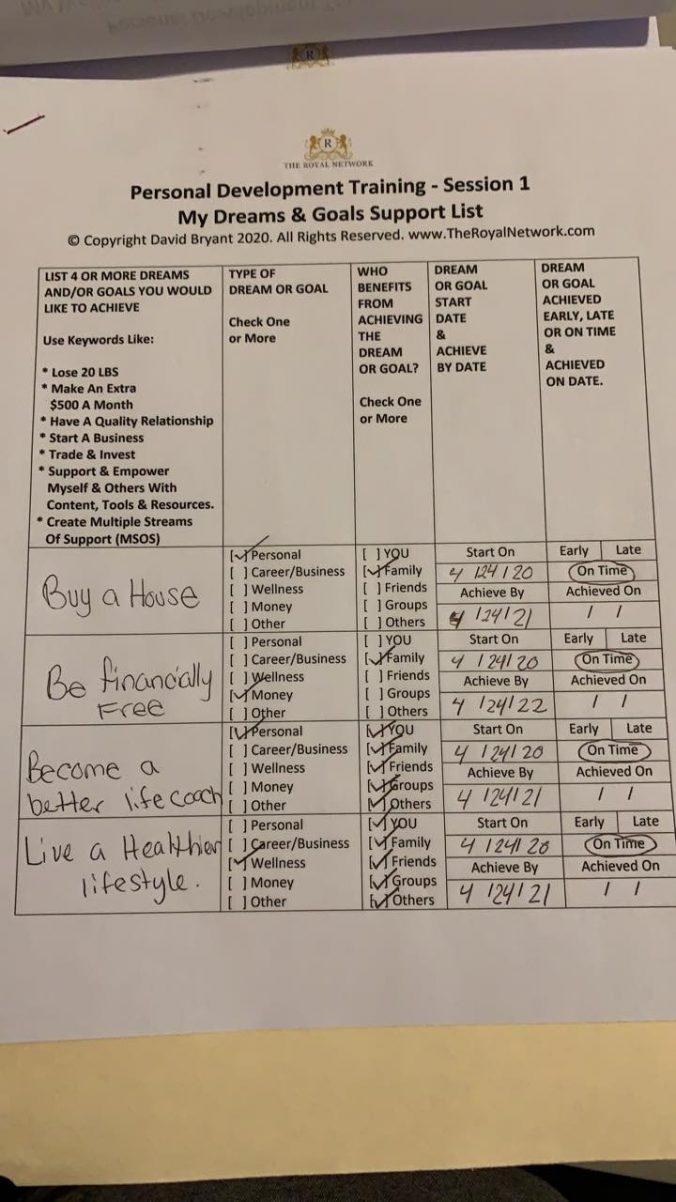 R
THE ROYAL NETWORK
Personal Development Training - Session 1
My Dreams & Goals Support List
© Copyright David Bryant 2020. All Rights Reserved. www.TheRoyalNetwork.com
LIST 4 OR MORE DREAMS
AND/OR GOALS YOU WOULD
LIKE TO ACHIEVE
Use Keywords Like:
* Lose 20 LBS
* Make An Extra
$500 A Month
* Have A Quality Relationship
* Start A Business
* Trade & Invest
* Support & Empower
Myself & Others With
Content, Tools & Resources.
* Create Multiple Streams
Of Support (MSOS)
TYPE OF
DREAM OR GOAL
Check One
or More
WHO
BENEFITS
FROM
ACHIEVING
THE
DREAM
OR GOAL?
Check One
or More
DREAM
OR GOAL
START
DATE
&
ACHIEVE
BY DATE
DREAM
OR GOAL
ACHIEVED
EARLY, LATE
OR ON TIME
&
ACHIEVED
ON DATE.
Buy a House
[✓] Personal
[ ] Career/Business
[ ] Wellness
[ ] Money
[ ] Other
[ ] YOU
[✓] Family
[ ] Friends
[ ] Groups
[ ] Others
Start On
4 /24/20
Achieve By
4 /24/21
Early Late
On Time
Achieved On
/ /
Be financially
Free
[ ] Personal
[ ] Career/Business
[ ] Wellness
[✓] Money
[ ] Other
[ ] YOU
[✓] Family
[ ] Friends
[ ] Groups
[ ] Others
Start On
4 /24/20
Achieve By
4 /24/22
Early Late
On Time
Achieved On
/ /
Become a
better life coach
[✓] Personal
[ ] Career/Business
[ ] Wellness
[ ] Money
[ ] Other
[✓] YOU
[✓] Family
[✓] Friends
[✓] Groups
[✓] Others
Start On
4 /24/20
Achieve By
4 /24/21
Early Late
On Time
Achieved On
/ /
Live a Healthier
lifestyle.
[ ] Personal
[ ] Career/Business
[✓] Wellness
[ ] Money
[ ] Other
[✓] YOU
[✓] Family
[✓] Friends
[✓] Groups
[✓] Others
Start On
4 /24/20
Achieve By
4 /24/21
Early Late
On Time
Achieved On
/ /